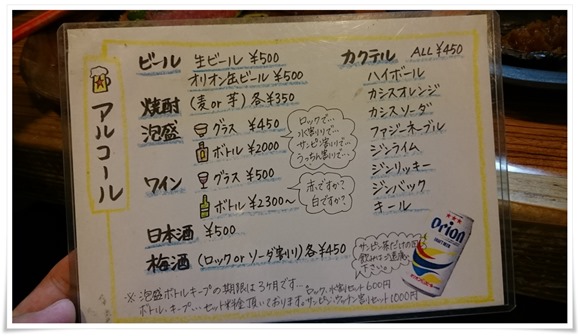 アルコール
ビール 生ビール ¥500
オリオン缶ビール ¥500
焼酎 (麦 or 芋) 各¥350
泡盛 グラス ¥450
ボトル ¥2000
ロックで…
水割りで…
サンピン割りで…
うっちん割りで…
ワイン グラス ¥500
ボトル ¥2300〜
赤ですか?
白ですか?
日本酒 ¥500
梅酒 (ロック or ソーダ割り) 各¥450
カクテル ALL ¥450
ハイボール
カシスオレンジ
カシスソーダ
ファジーネーブル
ジンライム
ジンリッキー
ジンバック
キール
サンピン茶だけの
飲みはご遠慮
下さい
Orion
※泡盛ボトルキープの期限は3ヶ月です…
ボトルキープ…セット料金頂いております。
ロック、水割セット600円
サンピン、ウッチン割セット1000円